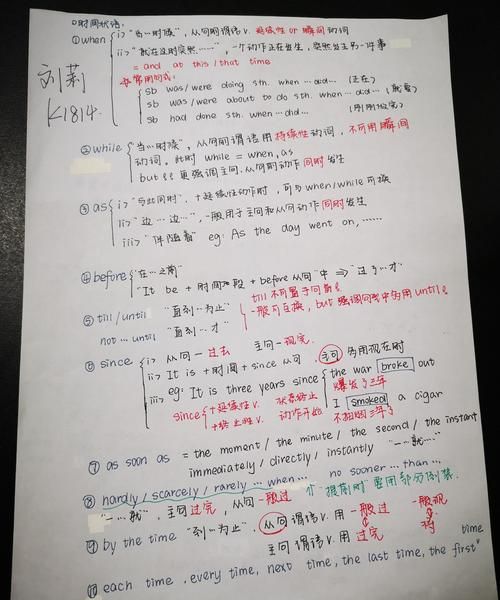 时间状语:
刘莉
K1814
①when
i> "当…时候", 从句谓语v. 延续性 or 瞬间动词
ii> "就在这时突然……", 一个动作正在发生, 突然发生另一件事
= and at this / that time
常用句式:
sb was/were doing sth. when …did… (正在)
sb was/were about to do sth. when …did… (就要)
sb had done sth. when …did… (刚刚做完)
②while
"当…时候", 从句谓语用持续性动词, 不可用瞬间
动词, 此时 while = when, as
but 更强调主句.从句动作同时发生
③as
i> "与此同时", +延续性动作时, 可与when/while互换
ii> "边…边…", 一般用于主句和从句动作同时发生
iii> "伴随着" eg: As the day went on, ……
④before
"在…之前"
"It be + 时间段 + before 从句" 中 ⇒ "过了…才"
⑤till/until "直到…为止"
not … until "直到…才"
till 不可置于句首
一般可互换, but 强调句中多用until
⑥since
i> 从句一过去 主句一现完.
ii> It is + 时间 + since 从句. 主句多用现在时
iii> eg: It is three years since
the war broke out
爆发了三年
I smoked a cigar
不抽烟三年了
since
+延续性v. 状态终止
+终止性v. 动作开始
⑦ as soon as = the moment / the minute / the second / the instant
immediately / directly / instantly "一…就…"
⑧ hardly / scarcely / rarely … when … no sooner … than …
"一…就", 主句过完, 从句一般过 提前时要用部分倒装.
⑨ by the time "到…为止". 从句谓语v. 用一般过 一般现
主句谓语v. 用过完 将
⑩ each time, every time, next time, the last time, the first time